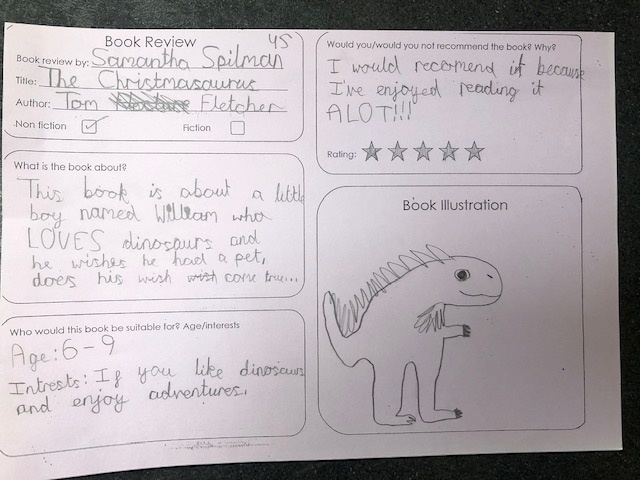 Book Review
4S
Book review by: Samantha Spilman
Title: The Christmasaurus
Author: Tom Fletcher
Non fiction
Fiction
What is the book about?
This book is about a little
boy named William who
LOVES dinosaurs and
he wishes he had a pet,
does his wish wish come true...
Who would this book be suitable for? Age/interests
Age: 6-9
Intrests: If you like dinosaurs
and enjoy adventures.
Would you/would you not recommend the book? Why?
I would recomend it because
I've enjoyed reading it
ALOT!!!
Rating:
Book Illustration